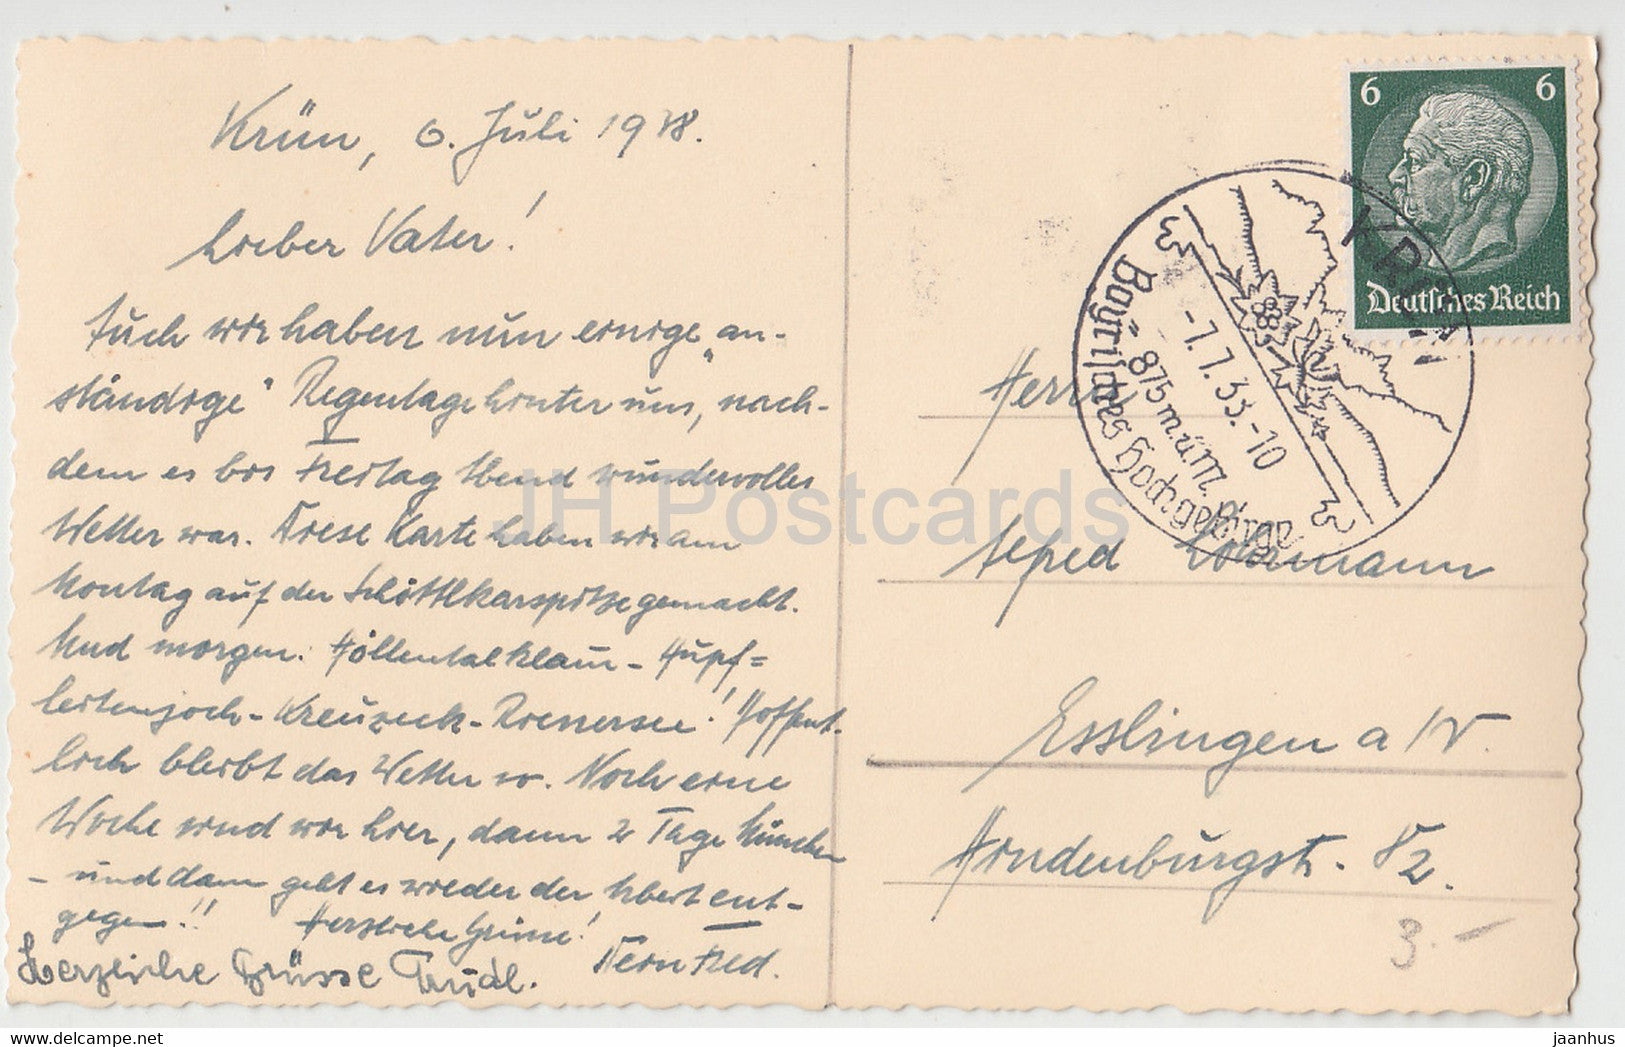 Krün, 6. Juli 1938.
Lieber Vater!
Auch wir haben nun einige „an-
ständige“ Regentage hinter uns, nach-
dem es bis Freitag Abend wundervolles
Wetter war. Diese Karte haben wir am
Montag auf der Schöttlkarspitze gemacht.
Und morgen: Höllentalklam - Hupf=
leitenjoch - Kreuzeck - Riessersee! Hoffent-
lich bleibt das Wetter so. Noch eine
Woche sind wir hier, dann 2 Tage München
- und dann geht es wieder der Arbeit ent-
gegen!! Herzliche Grüsse!
Dein Fred.
Herzliche Grüsse Trudl.
6 6
Deutsches Reich
KRÜN
-7.7.33.-10
875 m.ü.M.
Bayrisches Hochgebirge
Herrn
Alfred
Esslingen a/N.
Hindenburgstr. 82.
3.-
JH Postcards
jaanhus